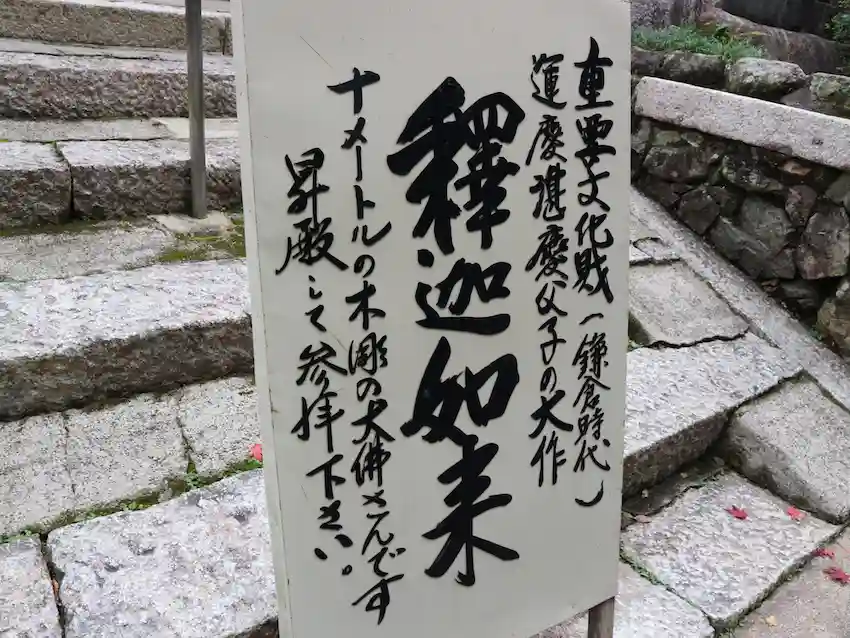 重要文化財(鎌倉時代)
運慶湛慶父子の大作
釋迦如来
十メートルの木彫の大佛さんです
昇殿して参拝下さい。